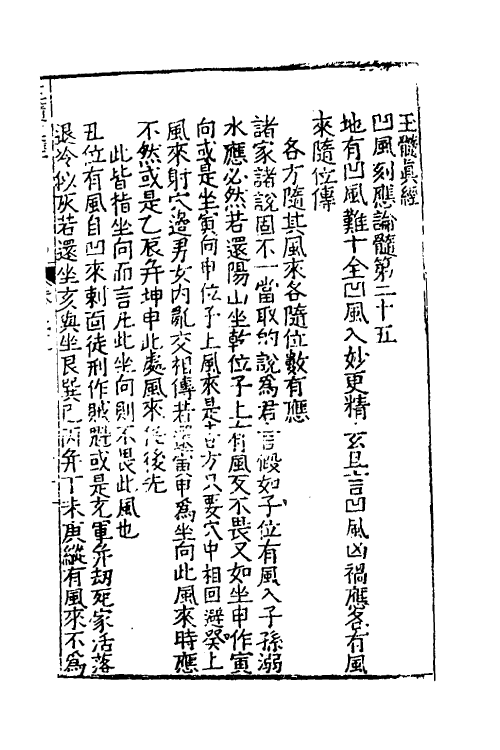 玉髓真經
凹風刻應論髓第二十五
地有凹風難十全凹風入妙更精玄且言凹風凶禍應各有風
來隨位傳
各方隨其風來各隨位數有應
諸家諸說固不一當取約說為君言假如子位有風入子孫溺
水應必然若還陽山坐乾位子上有風又不畏又如坐申作寅
向或是坐寅向申位子上風來是吉方只要穴中相回避癸上
風來射穴邊男女內亂交相傳若還寅申為坐向此風來時應
不然或是乙辰并坤申此處風來後先
此皆指坐向而言凡此坐向則不畏此風也
丑位有風自凹來刺面徒刑作賊魁或是充軍并劫死家活落
退冷似灰若還坐亥與坐艮巽巳丙并丁未庚縱有風來不為